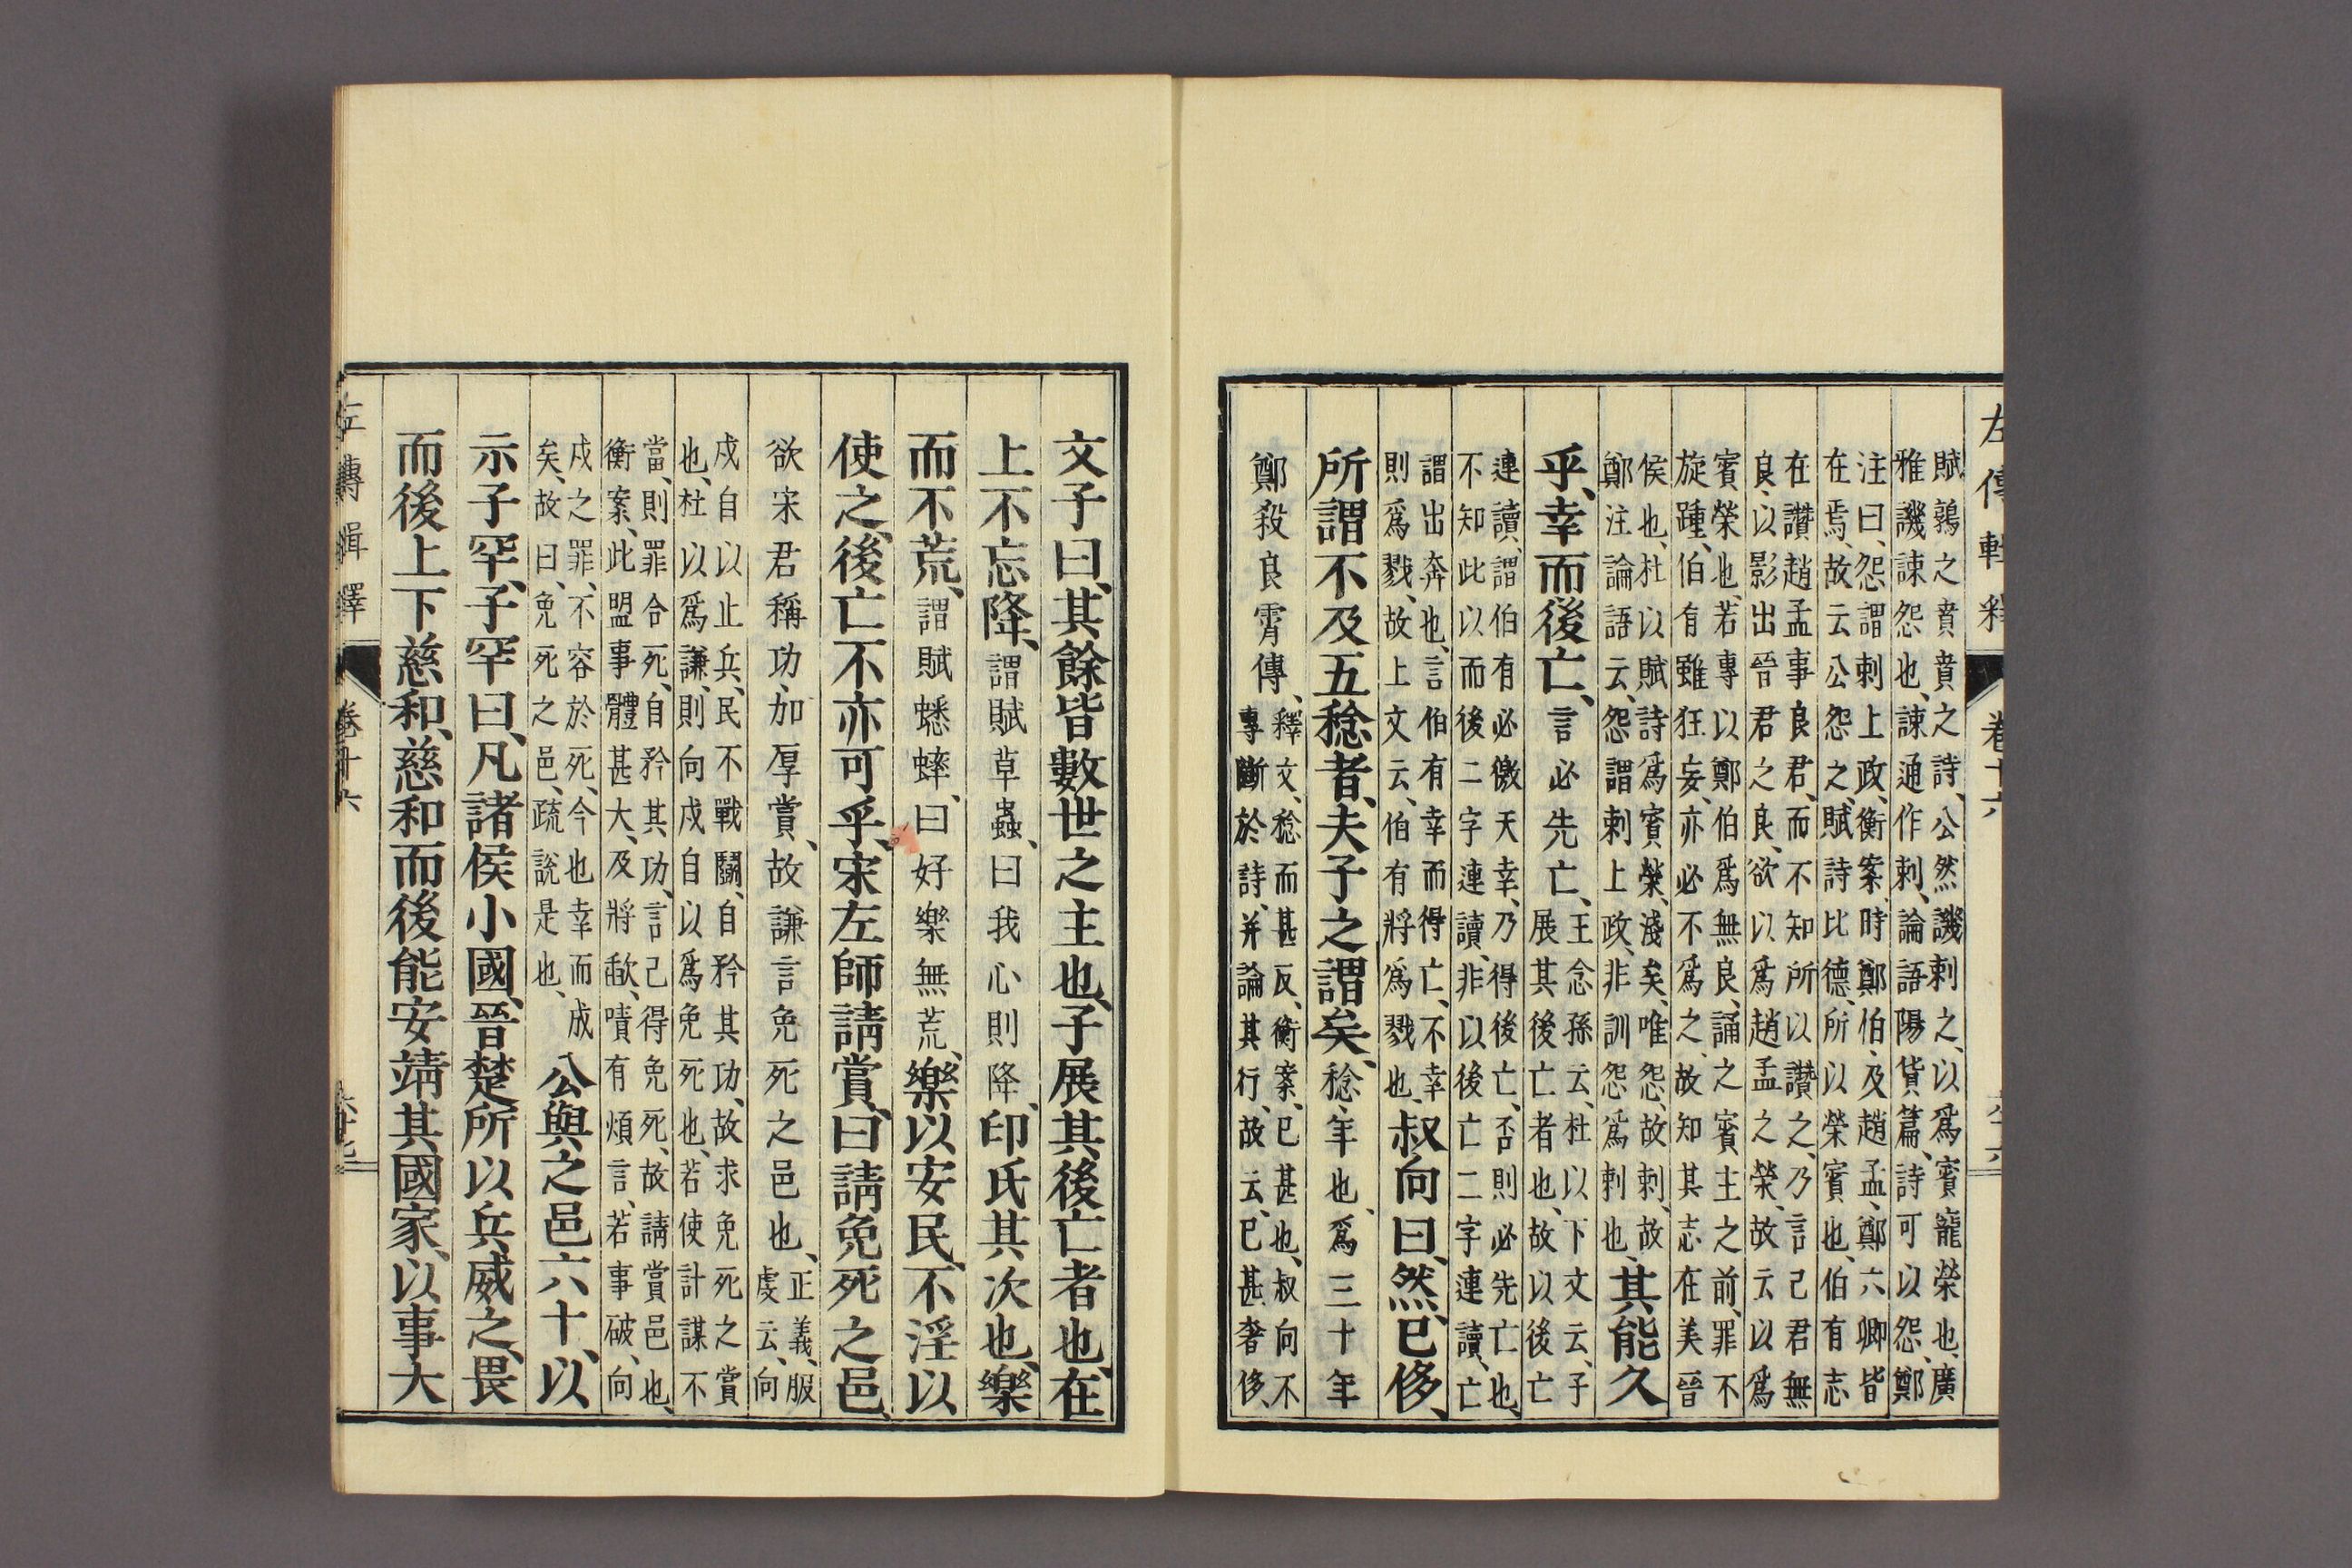 左傳輯釋 卷十六
賦鶉之賁賁之詩、公然譏刺之、以爲賓寵榮也、廣
雅譏諫怨也、諫通作刺、論語陽貨篇、詩可以怨、鄭
注曰、怨謂刺上政、衡案、時鄭伯及趙孟、鄭六卿皆
在焉、故云公怨之、賦詩比德、所以榮賓也、伯有志
在讚趙孟事良君、而不知所以讚之、乃言己君無
良、以影出晉君之良、欲以爲趙孟之榮、故云以爲
賓榮也、若專以鄭伯爲無良、誦之賓主之前、罪不
旋踵、伯有雖狂妄、亦必不爲之、故知其志在美晉
侯也、杜以賦詩爲賓榮、淺矣、唯怨、故刺、故
鄭注論語云、怨謂刺上政、非訓怨爲刺也、
其能久
乎、幸而後亡、言必先亡、
王念孫云、杜以下文云、子
展其後亡者也、故以後亡
連讀、謂伯有必徼天幸、乃得後亡、否則必先亡也、
不知此以而後二字連讀、非以後亡二字連讀、亡
謂出奔也、言伯有幸而得亡、不幸
則爲戮、故上文云、伯有將爲戮也、
叔向曰、然、已侈、
所謂不及五稔者、夫子之謂矣、稔、年也、爲三十年
鄭殺良霄傳、
釋文、稔而甚反、衡案、已甚也、叔向不
專斷於詩、并論其行、故云、已甚奢侈、
文子曰、其餘皆數世之主也、子展其後亡者也、在
上不忘降、謂賦草蟲、曰我心則降、印氏其次也、樂
而不荒、謂賦蟋蟀、曰好樂無荒、樂以安民、不淫以
使之、後亡不亦可乎、宋左師請賞、曰請免死之邑、
欲宋君稱功、加厚賞、故謙言免死之邑也、
正義、服
虔云、向
戍自以止兵、民不戰鬬、自矜其功、故求免死之賞
也、杜以爲謙、則向戍自以爲免死也、若使計謀不
當、則罪合死、自矜其功、言己得免死、故請賞邑也、
衡案、此盟事體甚大、及將歃、嘖有煩言、若事破、向
戍之罪、不容於死、今也幸而成
矣、故曰、免死之邑、疏說是也、
公與之邑六十、以
示子罕、子罕曰、凡諸侯小國、晉楚所以兵威之、畏
而後上下慈和、慈和而後能安靖其國家、以事大
左傳輯釋 卷十六